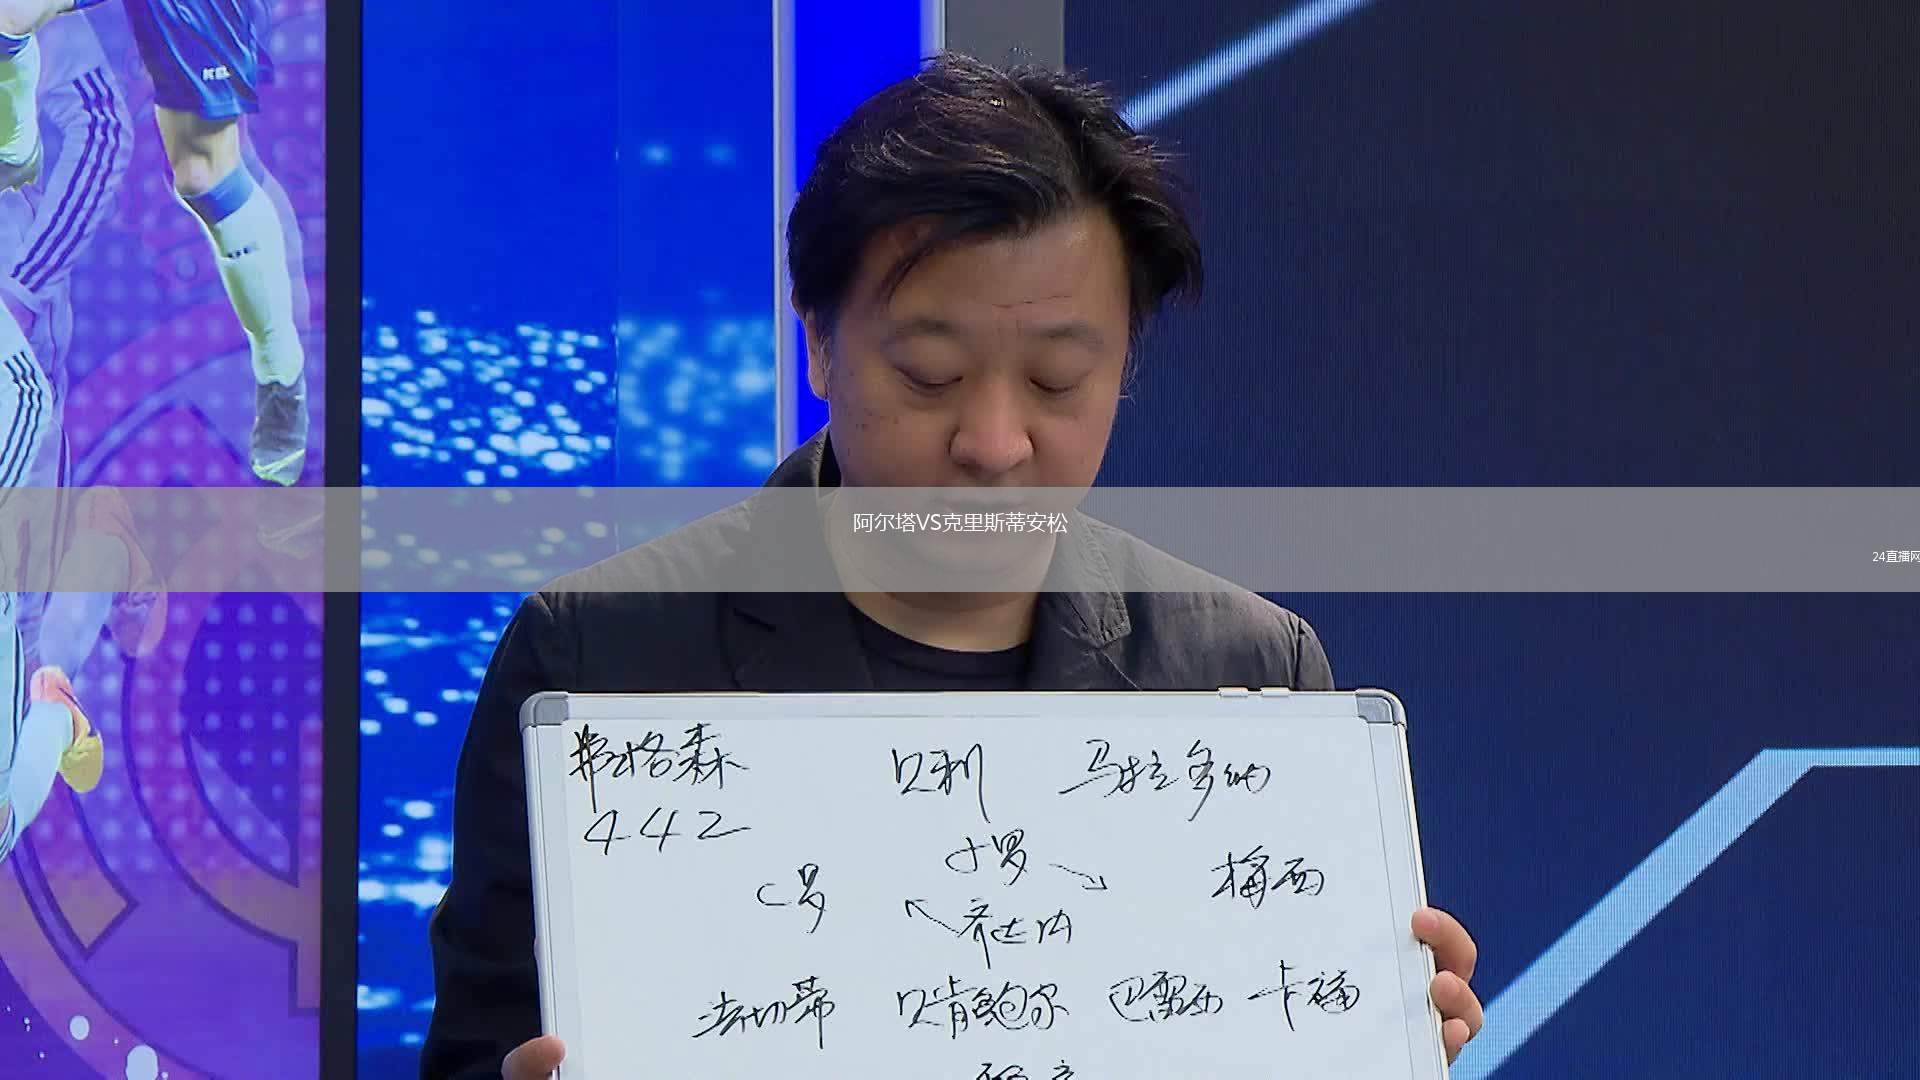 KEL
阿尔塔VS克里斯蒂安松
24直播网
弗格森 贝利 马拉多纳
442
小罗
C罗 梅西
齐达内
法切蒂 贝肯鲍尔 巴雷西 卡福